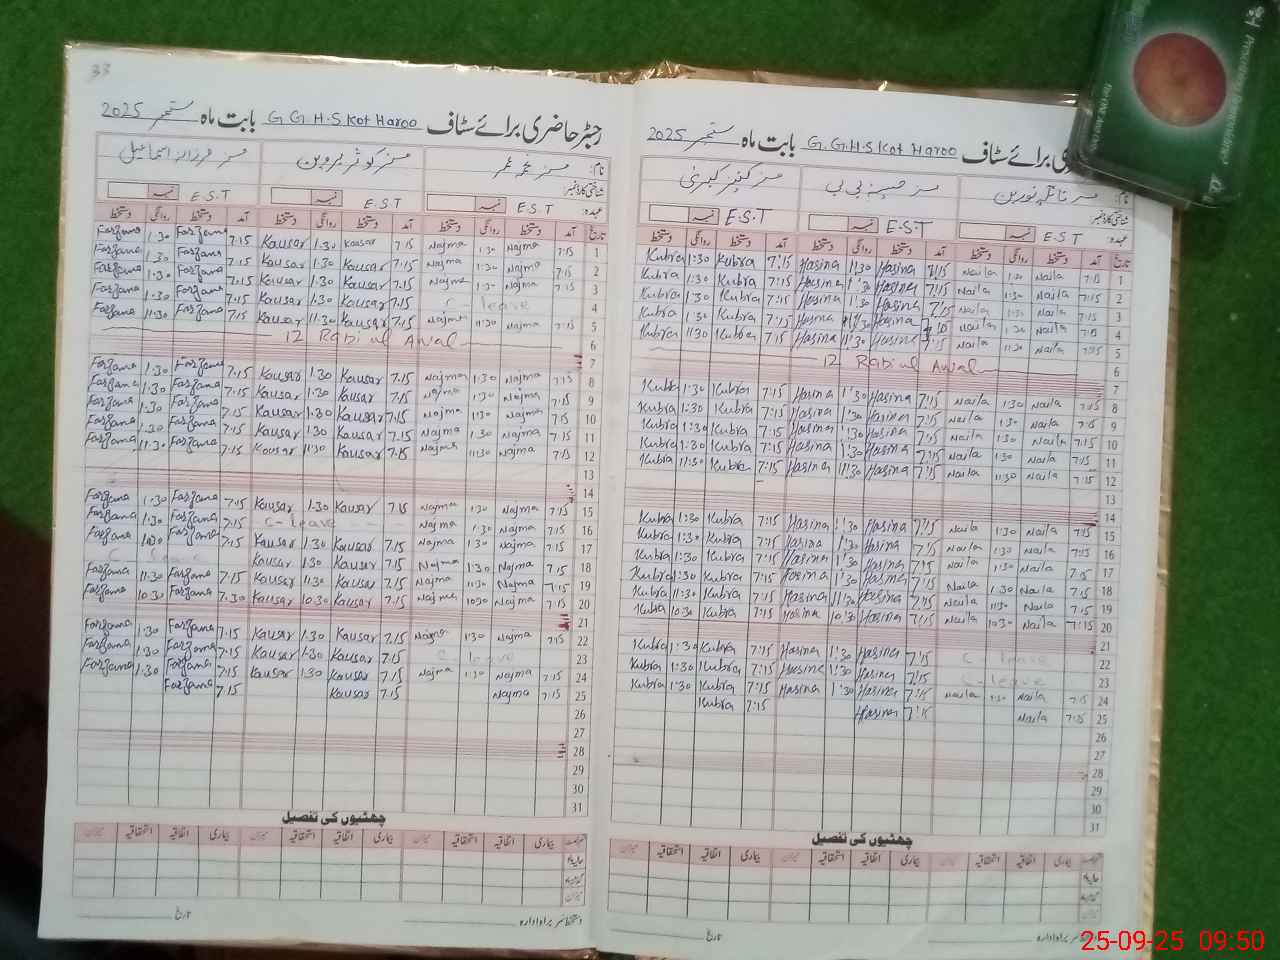 33
رجسٹر حاضری برائے سٹاف G.G.H.S Kot Haroo بابت ماہ ستمبر 2025
نام: مسز نجمہ عمر مسز کوثر پروین مسز فرزانہ اسماعیل
شناختی کارڈ نمبر:
عہدہ: E.S.T نمبر E.S.T نمبر E.S.T نمبر
تاریخ آمد دستخط روانگی دستخط آمد دستخط روانگی دستخط آمد دستخط روانگی دستخط
Farzana 1:30 Farzana 7:15 Kausar 1:30 Kausar 7:15 Najma 1:30 Najma 7:15 1
Farzana 1:30 Farzana 7:15 Kausar 1:30 Kausar 7:15 Najma 1:30 Najma 7:15 2
Farzana 1:30 Farzana 7:15 Kausar 1:30 Kausar 7:15 Najma 1:30 Najma 7:15 3
Farzana 1:30 Farzana 7:15 Kausar 1:30 Kausar 7:15 C - leave 4
Farzana 11:30 Farzana 7:15 Kausar 11:30 Kausar 7:15 Najma 11:30 Najma 7:15 5
12 Rabi ul Awal 6
7
Farzana 1:30 Farzana 7:15 Kausar 1:30 Kausar 7:15 Najma 1:30 Najma 7:15 8
Farzana 1:30 Farzana 7:15 Kausar 1:30 Kausar 7:15 Najma 1:30 Najma 7:15 9
Farzana 1:30 Farzana 7:15 Kausar 1:30 Kausar 7:15 Najma 1:30 Najma 7:15 10
Farzana 1:30 Farzana 7:15 Kausar 1:30 Kausar 7:15 Najma 1:30 Najma 7:15 11
Farzana 11:30 Farzana 7:15 Kausar 11:30 Kausar 7:15 Najma 11:30 Najma 7:15 12
13
14
Farzana 1:30 Farzana 7:15 Kausar 1:30 Kausar 7:15 Najma 1:30 Najma 7:15 15
Farzana 1:30 Farzana 7:15 C-leave Najma 1:30 Najma 7:15 16
Farzana 1:30 Farzana 7:15 Kausar 1:30 Kausar 7:15 Najma 1:30 Najma 7:15 17
C leave Kausar 1:30 Kausar 7:15 Najma 1:30 Najma 7:15 18
Farzana 11:30 Farzana 7:15 Kausar 11:30 Kausar 7:15 Najma 11:30 Najma 7:15 19
Farzana 10:30 Farzana 7:30 Kausar 10:30 Kausar 7:15 Najma 10:30 Najma 7:15 20
21
Farzana 1:30 Farzana 7:15 Kausar 1:30 Kausar 7:15 Najma 1:30 Najma 7:15 22
Farzana 1:30 Farzana 7:15 Kausar 1:30 Kausar 7:15 C leave 23
Farzana 1:30 Farzana 7:15 Kausar 1:30 Kausar 7:15 Najma 1:30 Najma 7:15 24
Farzana 7:15 Kausar 7:15 Najma 7:15 25
26
27
28
29
30
31
چھٹیوں کی تفصیل
بیماری اتفاقیہ استحقاقیہ میزان بیماری اتفاقیہ استحقاقیہ میزان
حالیہ ماہ
گذشتہ ماہ
میزان
دستخط سربراہ ادارہ تاریخ
G.G.H.S Kot Haroo بابت ماہ ستمبر 2025
نام: مسز نائلہ نورین مسز حسینہ بی بی مسز کنیز کبریٰ
شناختی کارڈ نمبر:
عہدہ: E.S.T نمبر E.S.T نمبر E.S.T نمبر
تاریخ آمد دستخط روانگی دستخط آمد دستخط روانگی دستخط آمد دستخط روانگی دستخط
Kubra 1:30 Kubra 7:15 Hasina 1:30 Hasina 7:15 Naila 1:30 Naila 7:15 1
Kubra 1:30 Kubra 7:15 Hasina 1:30 Hasina 7:15 Naila 1:30 Naila 7:15 2
Kubra 1:30 Kubra 7:15 Hasina 1:30 Hasina 7:15 Naila 1:30 Naila 7:15 3
Kubra 1:30 Kubra 7:15 Hasina 1:30 Hasina 7:15 Naila 1:30 Naila 7:15 4
Kubra 11:30 Kubra 7:15 Hasina 11:30 Hasina 7:15 Naila 11:30 Naila 7:15 5
12 Rabi ul Awal 6
7
Kubra 1:30 Kubra 7:15 Hasina 1:30 Hasina 7:15 Naila 1:30 Naila 7:15 8
Kubra 1:30 Kubra 7:15 Hasina 1:30 Hasina 7:15 Naila 1:30 Naila 7:15 9
Kubra 1:30 Kubra 7:15 Hasina 1:30 Hasina 7:15 Naila 1:30 Naila 7:15 10
Kubra 1:30 Kubra 7:15 Hasina 1:30 Hasina 7:15 Naila 1:30 Naila 7:15 11
Kubra 11:30 Kubra 7:15 Hasina 11:30 Hasina 7:15 Naila 11:30 Naila 7:15 12
13
14
Kubra 1:30 Kubra 7:15 Hasina 1:30 Hasina 7:15 Naila 1:30 Naila 7:15 15
Kubra 1:30 Kubra 7:15 Hasina 1:30 Hasina 7:15 Naila 1:30 Naila 7:15 16
Kubra 1:30 Kubra 7:15 Hasina 1:30 Hasina 7:15 Naila 1:30 Naila 7:15 17
Kubra 1:30 Kubra 7:15 Hasina 1:30 Hasina 7:15 Naila 1:30 Naila 7:15 18
Kubra 11:30 Kubra 7:15 Hasina 11:30 Hasina 7:15 Naila 11:30 Naila 7:15 19
Kubra 10:30 Kubra 7:15 Hasina 10:30 Hasina 7:15 Naila 10:30 Naila 7:15 20
21
Kubra 1:30 Kubra 7:15 Hasina 1:30 Hasina 7:15 C leave 22
Kubra 1:30 Kubra 7:15 Hasina 1:30 Hasina 7:15 C-leave 23
Kubra 1:30 Kubra 7:15 Hasina 1:30 Hasina 7:15 Naila 1:30 Naila 7:15 24
Kubra 7:15 Hasina 7:15 Naila 7:15 25
26
27
28
29
30
31
چھٹیوں کی تفصیل
بیماری اتفاقیہ استحقاقیہ میزان بیماری اتفاقیہ استحقاقیہ میزان
حالیہ ماہ
گذشتہ ماہ
میزان
سربراہ ادارہ تاریخ
25-09-25 09:50